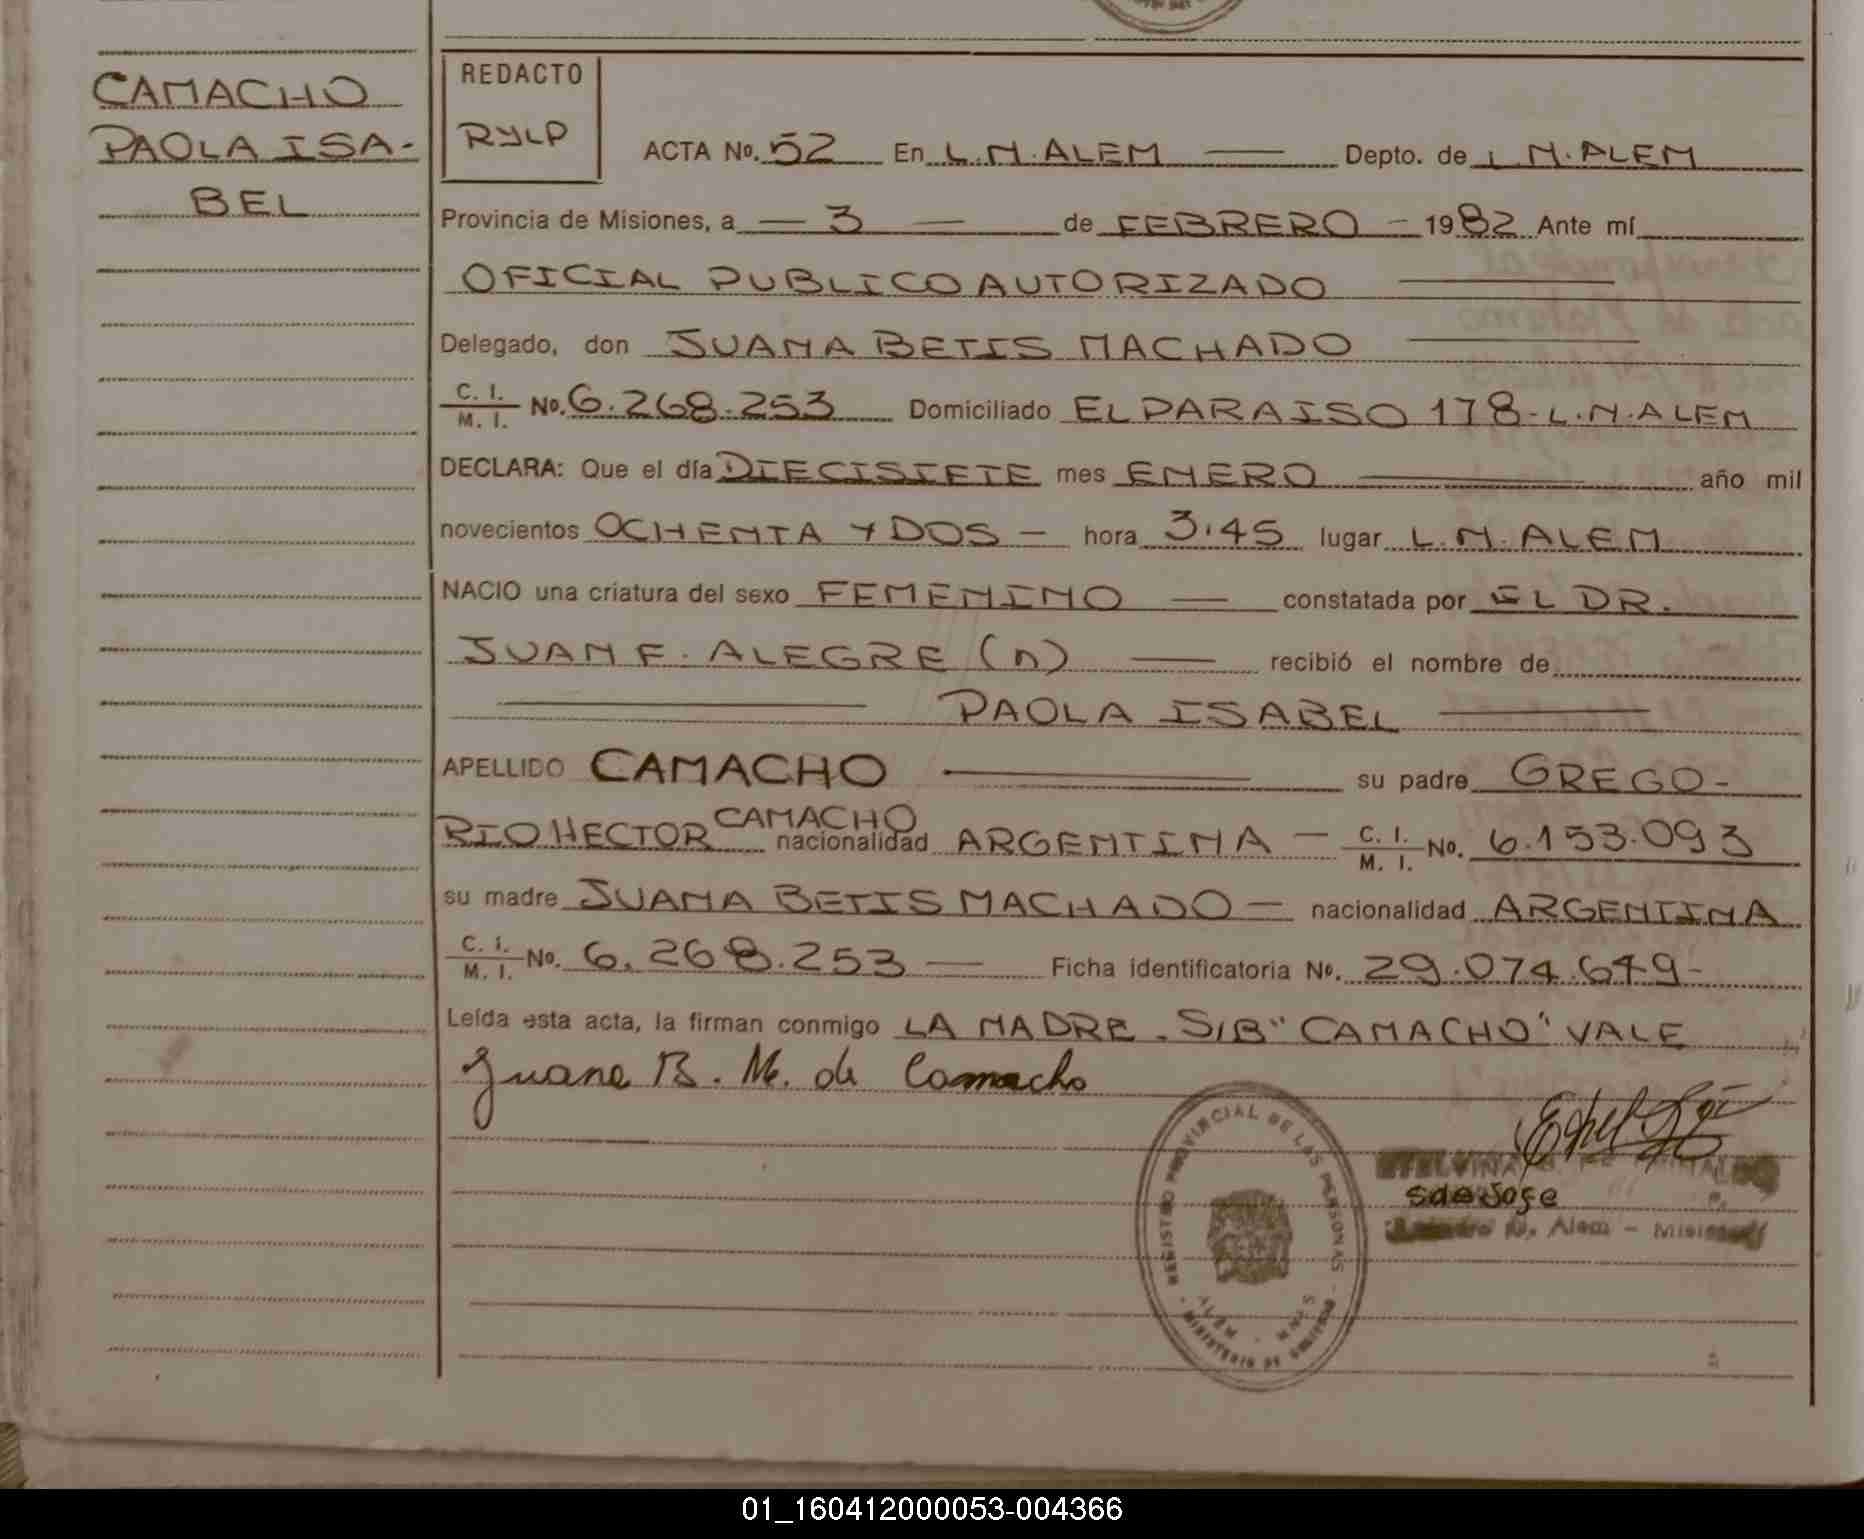 CAMACHO
PAOLA ISA-
BEL
REDACTO
RYLP
ACTA No. 52 En L.N.ALEM Depto. de L N.ALEM
Provincia de Misiones, a — 3 — de FEBRERO - 1982 Ante mí
OFICIAL PUBLICO AUTORIZADO
Delegado, don JUANA BETIS MACHADO
C. I. / M. I. No. 6.268.253 Domiciliado EL PARAISO 178-L.N.ALEM
DECLARA: Que el día DIECISIETE mes ENERO año mil
novecientos OCHENTA Y DOS — hora 3.45 lugar L.N.ALEM
NACIO una criatura del sexo FEMENINO — constatada por EL DR.
JUAN F. ALEGRE (n) — recibió el nombre de
PAOLA ISABEL
APELLIDO CAMACHO su padre GREGO-
RIO HECTOR CAMACHO nacionalidad ARGENTINA — C. I. / M. I. No. 6.153.093
su madre JUANA BETIS MACHADO — nacionalidad ARGENTINA
C. I. / M. I. No. 6.268.253 — Ficha identificatoria No. 29.074.649-
Leída esta acta, la firman conmigo LA MADRE. S/B "CAMACHO" VALE
Juana B. M. de Camacho
REGISTRO PROVINCIAL DE LAS PERSONAS
ALEM - MNES
MINISTERIO DE GOBIERNO
N. Alem - Misiones
01_160412000053-004366